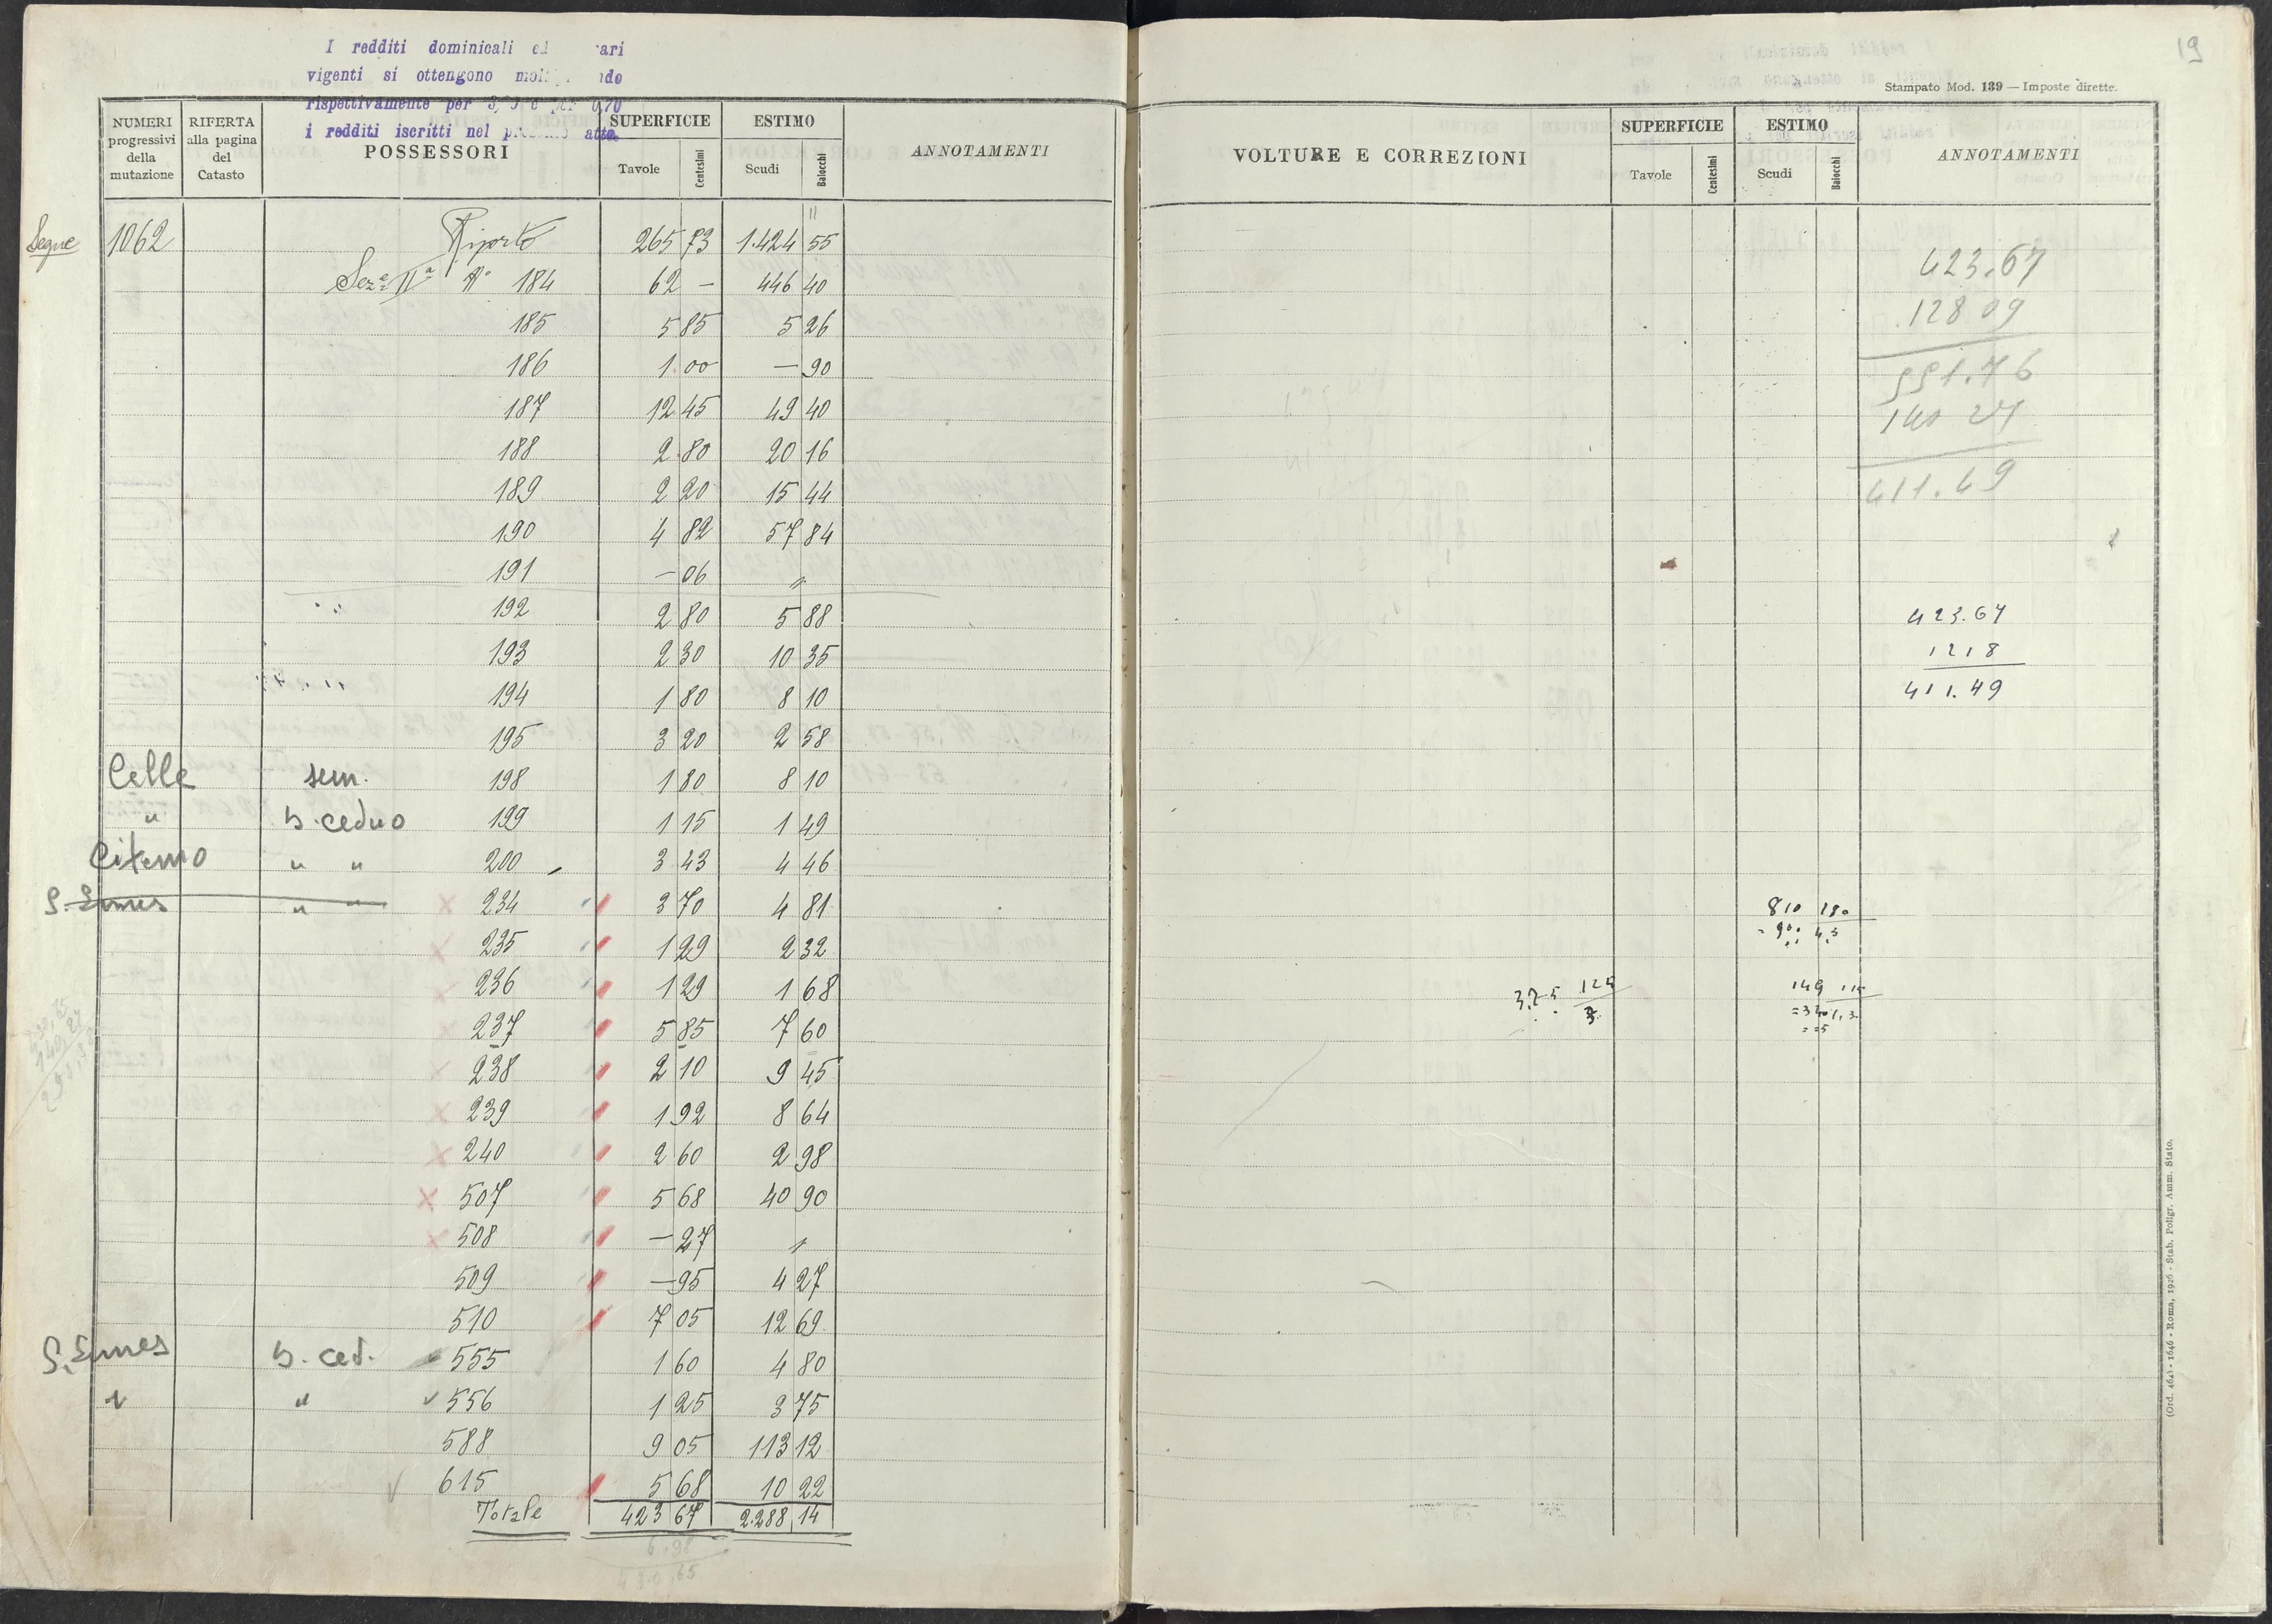 I redditi dominicali ed ari
vigenti si ottengono
rispettivamente per 0,70
i redditi iscritti nel atto.
NUMERI progressivi della mutazione
RIFERTA alla pagina del Catasto
POSSESSORI
SUPERFICIE
Tavole Centesimi
ESTIMO
Scudi Baiocchi
ANNOTAMENTI
Segue 1062 Riporto 265 73 1.424 55
Sez.e IIa N° 184 62 — 446 40
185 5 85 5 26
186 1.00 — 90
187 12 45 49 40
188 2.80 20 16
189 2 20 15 44
190 4 82 57 84
191 — 06 "
192 2 80 5 88
193 2 30 10 35
194 1 80 8 10
195 3 20 2 58
Celle sem. 198 1 80 8 10
" b. ceduo 199 1 15 1 49
Citerno " " 200 3 43 4 46
S. Ermes " " 234 3 70 4 81
235 1 29 2 32
236 1 29 1 68
237 5 85 7 60
238 2 10 9 45
239 1 92 8 64
240 2 60 2 98
507 5 68 40 90
508 — 27
509 — 95 4 27
510 7 05 12 69
S. Ermes b. ced. 555 1 60 4 80
" " 556 1 25 3 75
588 9 05 113 12
615 5 68 10 22
Totale 423 67 2.288 14
6.98
430,65
19
Stampato Mod. 139 — Imposte dirette.
VOLTURE E CORREZIONI
SUPERFICIE
Tavole Centesimi
ESTIMO
Scudi Baiocchi
ANNOTAMENTI
423.67
128 09
551.76
140 27
411.49
423.67
12 18
411.49
810 180
90 4,5
149 115
340 1,3
5
3.75 125
3
(Ord. 464) - 1646 - Roma, 1926 - Stab. Poligr. Amm. Stato.